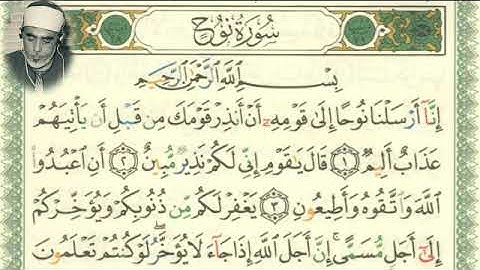 سُورَةُ نُوحٍ
بِسْمِ اللَّهِ الرَّحْمَٰنِ الرَّحِيمِ
إِنَّا أَرْسَلْنَا نُوحًا إِلَىٰ قَوْمِهِ أَنْ أَنذِرْ قَوْمَكَ مِن قَبْلِ أَن يَأْتِيَهُمْ
عَذَابٌ أَلِيمٌ ١ قَالَ يَٰقَوْمِ إِنِّي لَكُمْ نَذِيرٌ مُّبِينٌ ٢ أَنِ اعْبُدُوا
اللَّهَ وَاتَّقُوهُ وَأَطِيعُونِ ٣ يَغْفِرْ لَكُم مِّن ذُنُوبِكُمْ وَيُؤَخِّرْكُمْ
إِلَىٰ أَجَلٍ مُّسَمًّى ۚ إِنَّ أَجَلَ اللَّهِ إِذَا جَاءَ لَا يُؤَخَّرُ ۖ لَوْ كُنتُمْ تَعْلَمُونَ